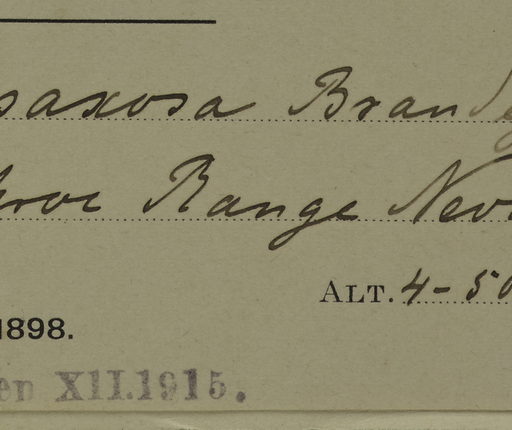 saxosa Brandeg
Range Nev.
ALT. 4-50
1898.
en XII.1915.